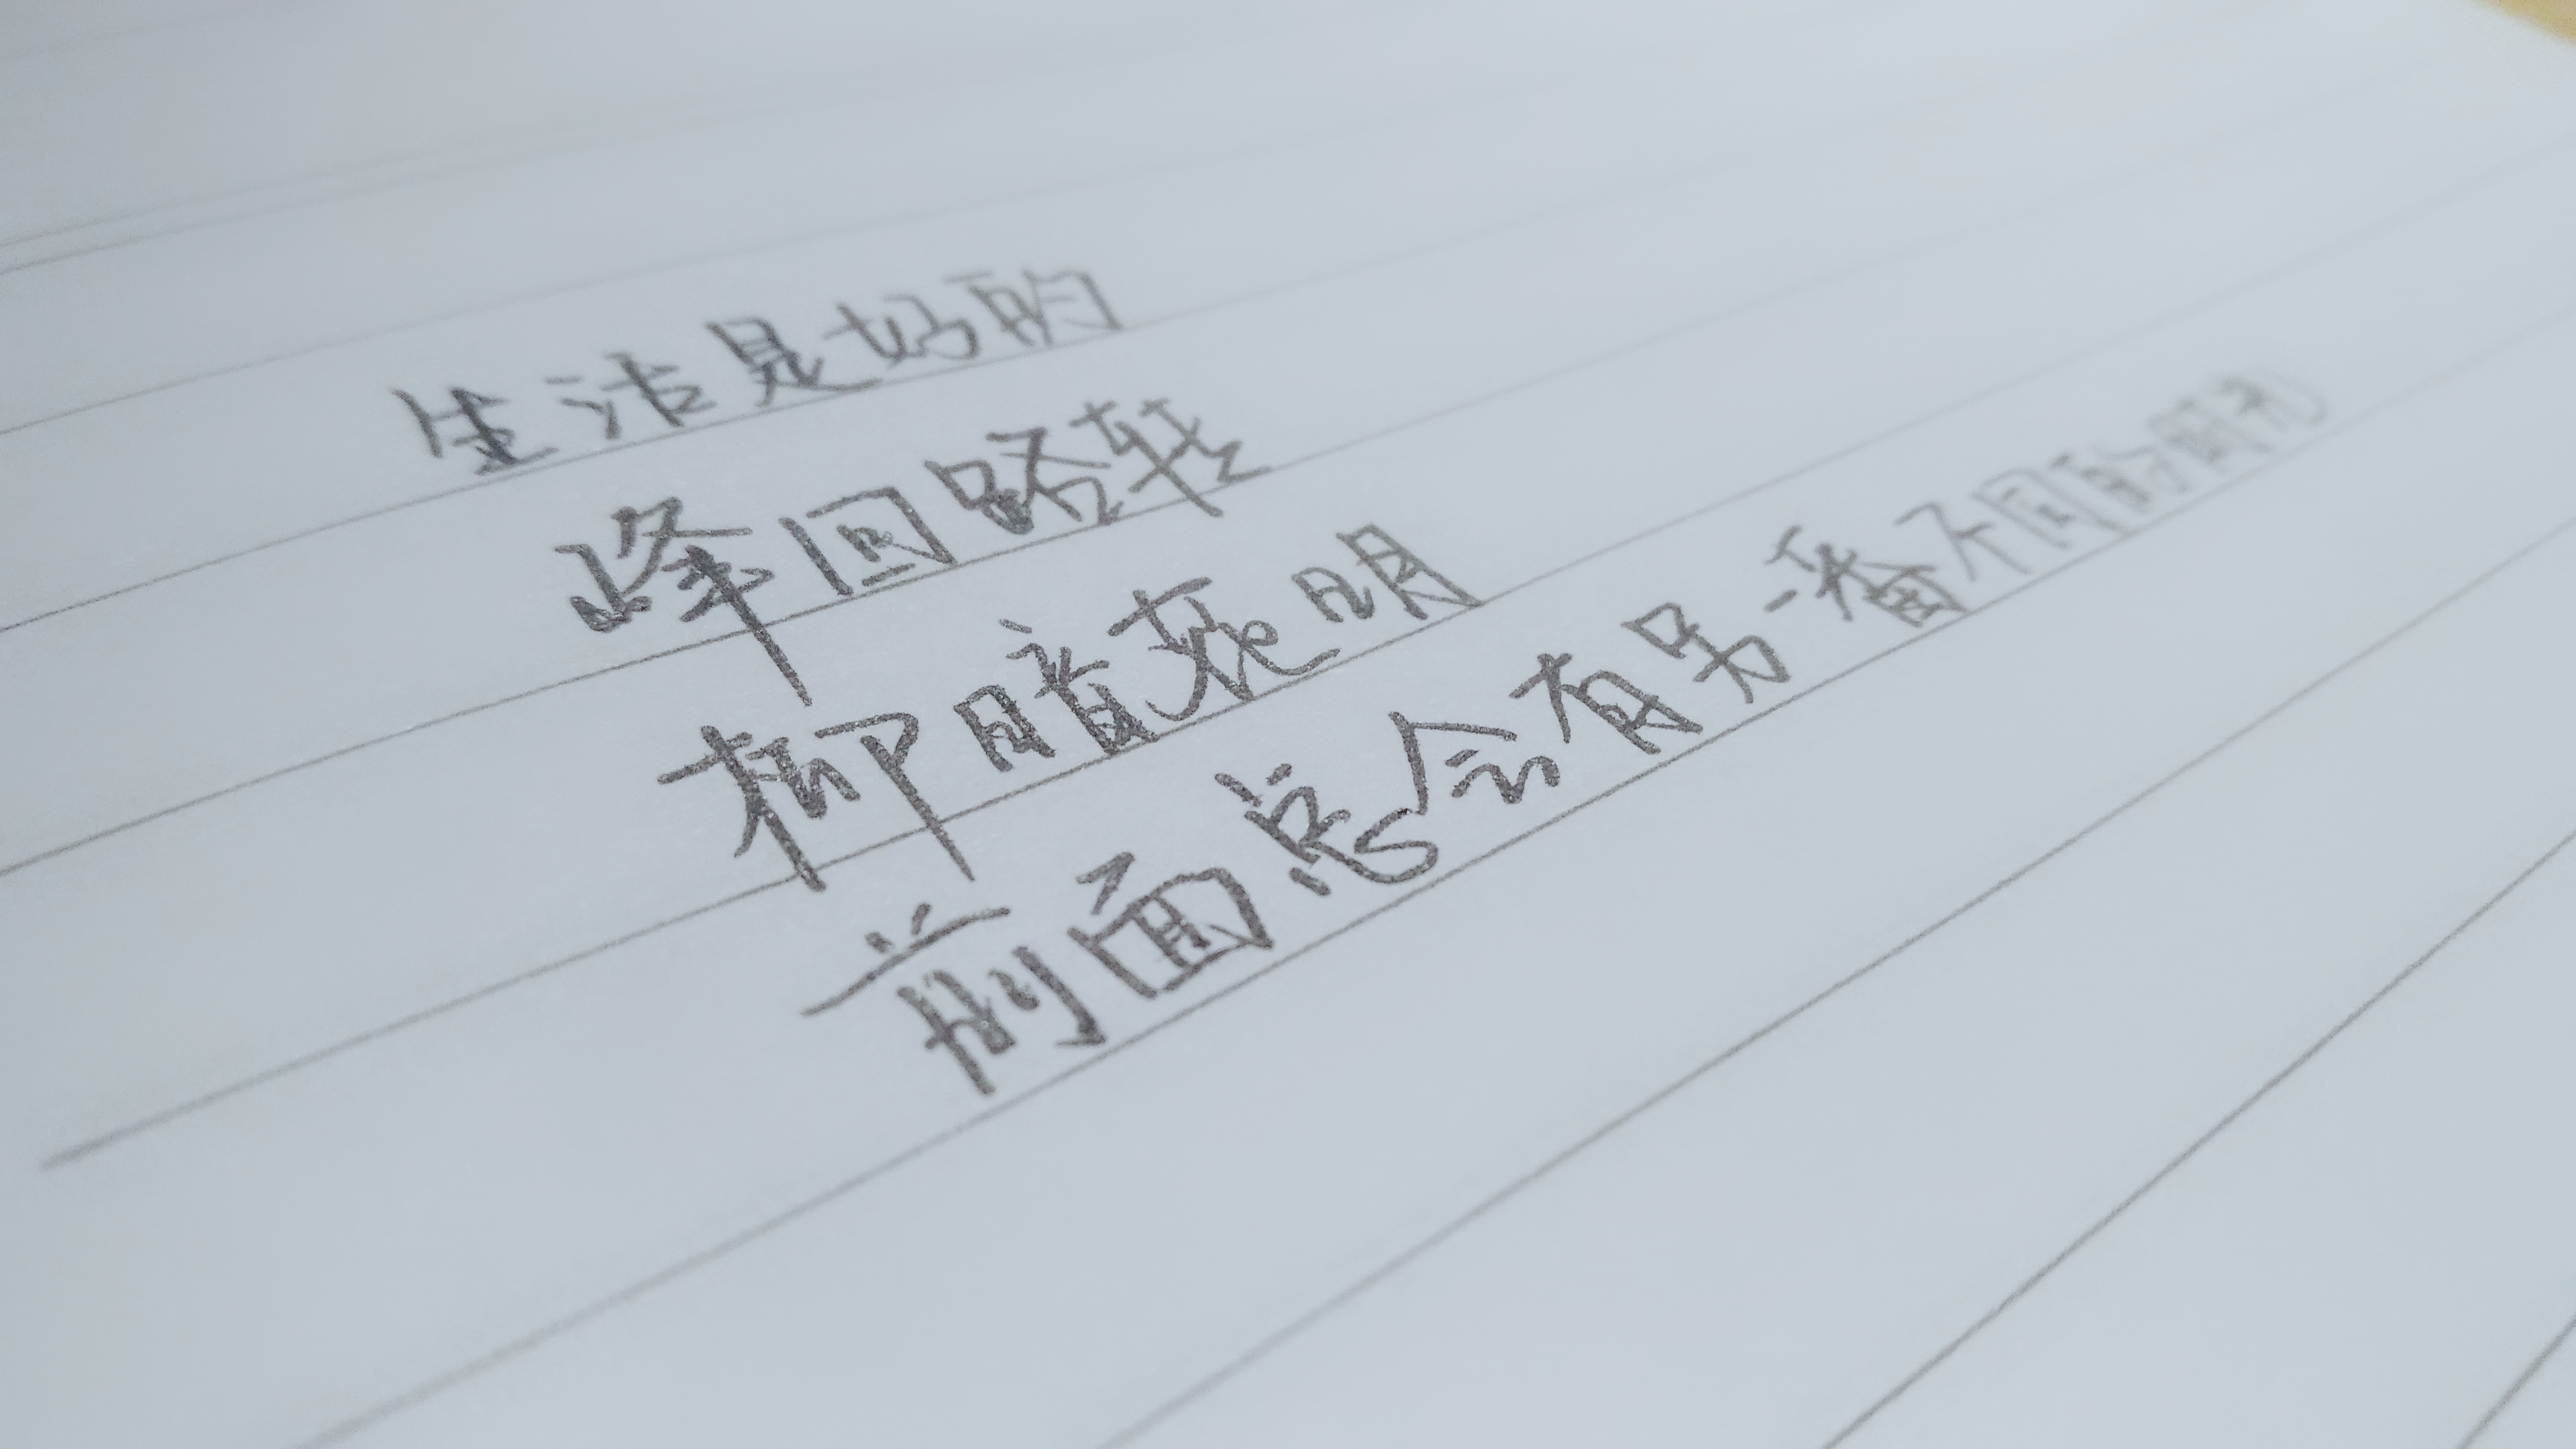 生活是好的
峰回路转
柳暗花明
前面总会有另一番不同的时光